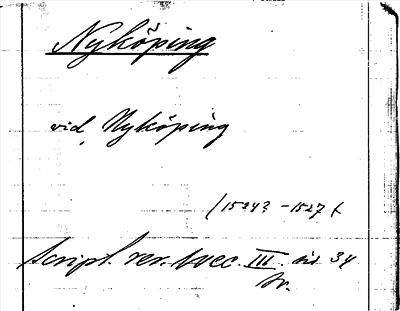 Nyköping
vid Nyköping
(1524? - 1527)
Script. rer. svec. III sid 34